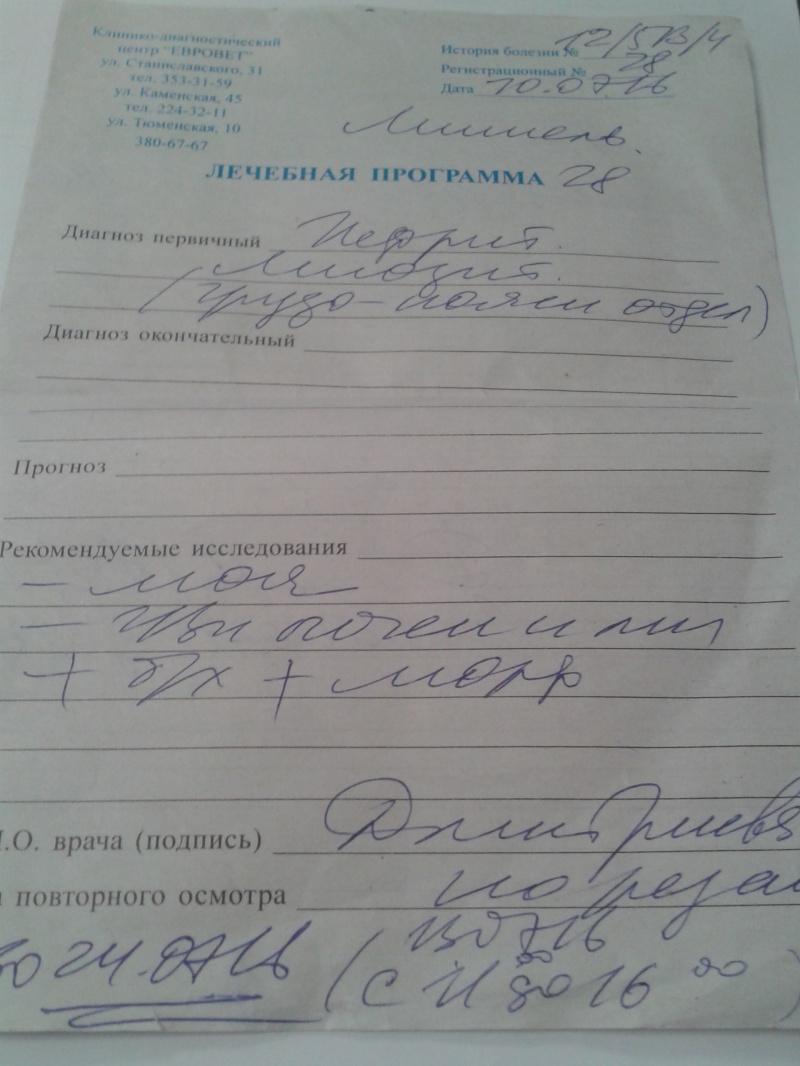 Клинико-диагностический
центр "ЕВРОВЕТ"
ул. Станиславского, 31
тел. 353-31-59
ул. Каменская, 45
тел. 224-32-11
ул. Тюменская, 10
380-67-67
История болезни № 12/5
Регистрационный № 28
Дата 10.07.16
ЛЕЧЕБНАЯ ПРОГРАММА 28
Диагноз первичный Нефрит.
Миозит.
(грудо-поясн отдел)
Диагноз окончательный
Прогноз
Рекомендуемые исследования
- моча
- УЗИ почек и мп
+ б/х + морф
.О. врача (подпись) Дмитриева
повторного осмотра по
24.07.16 (с 11 00 до 16 00)